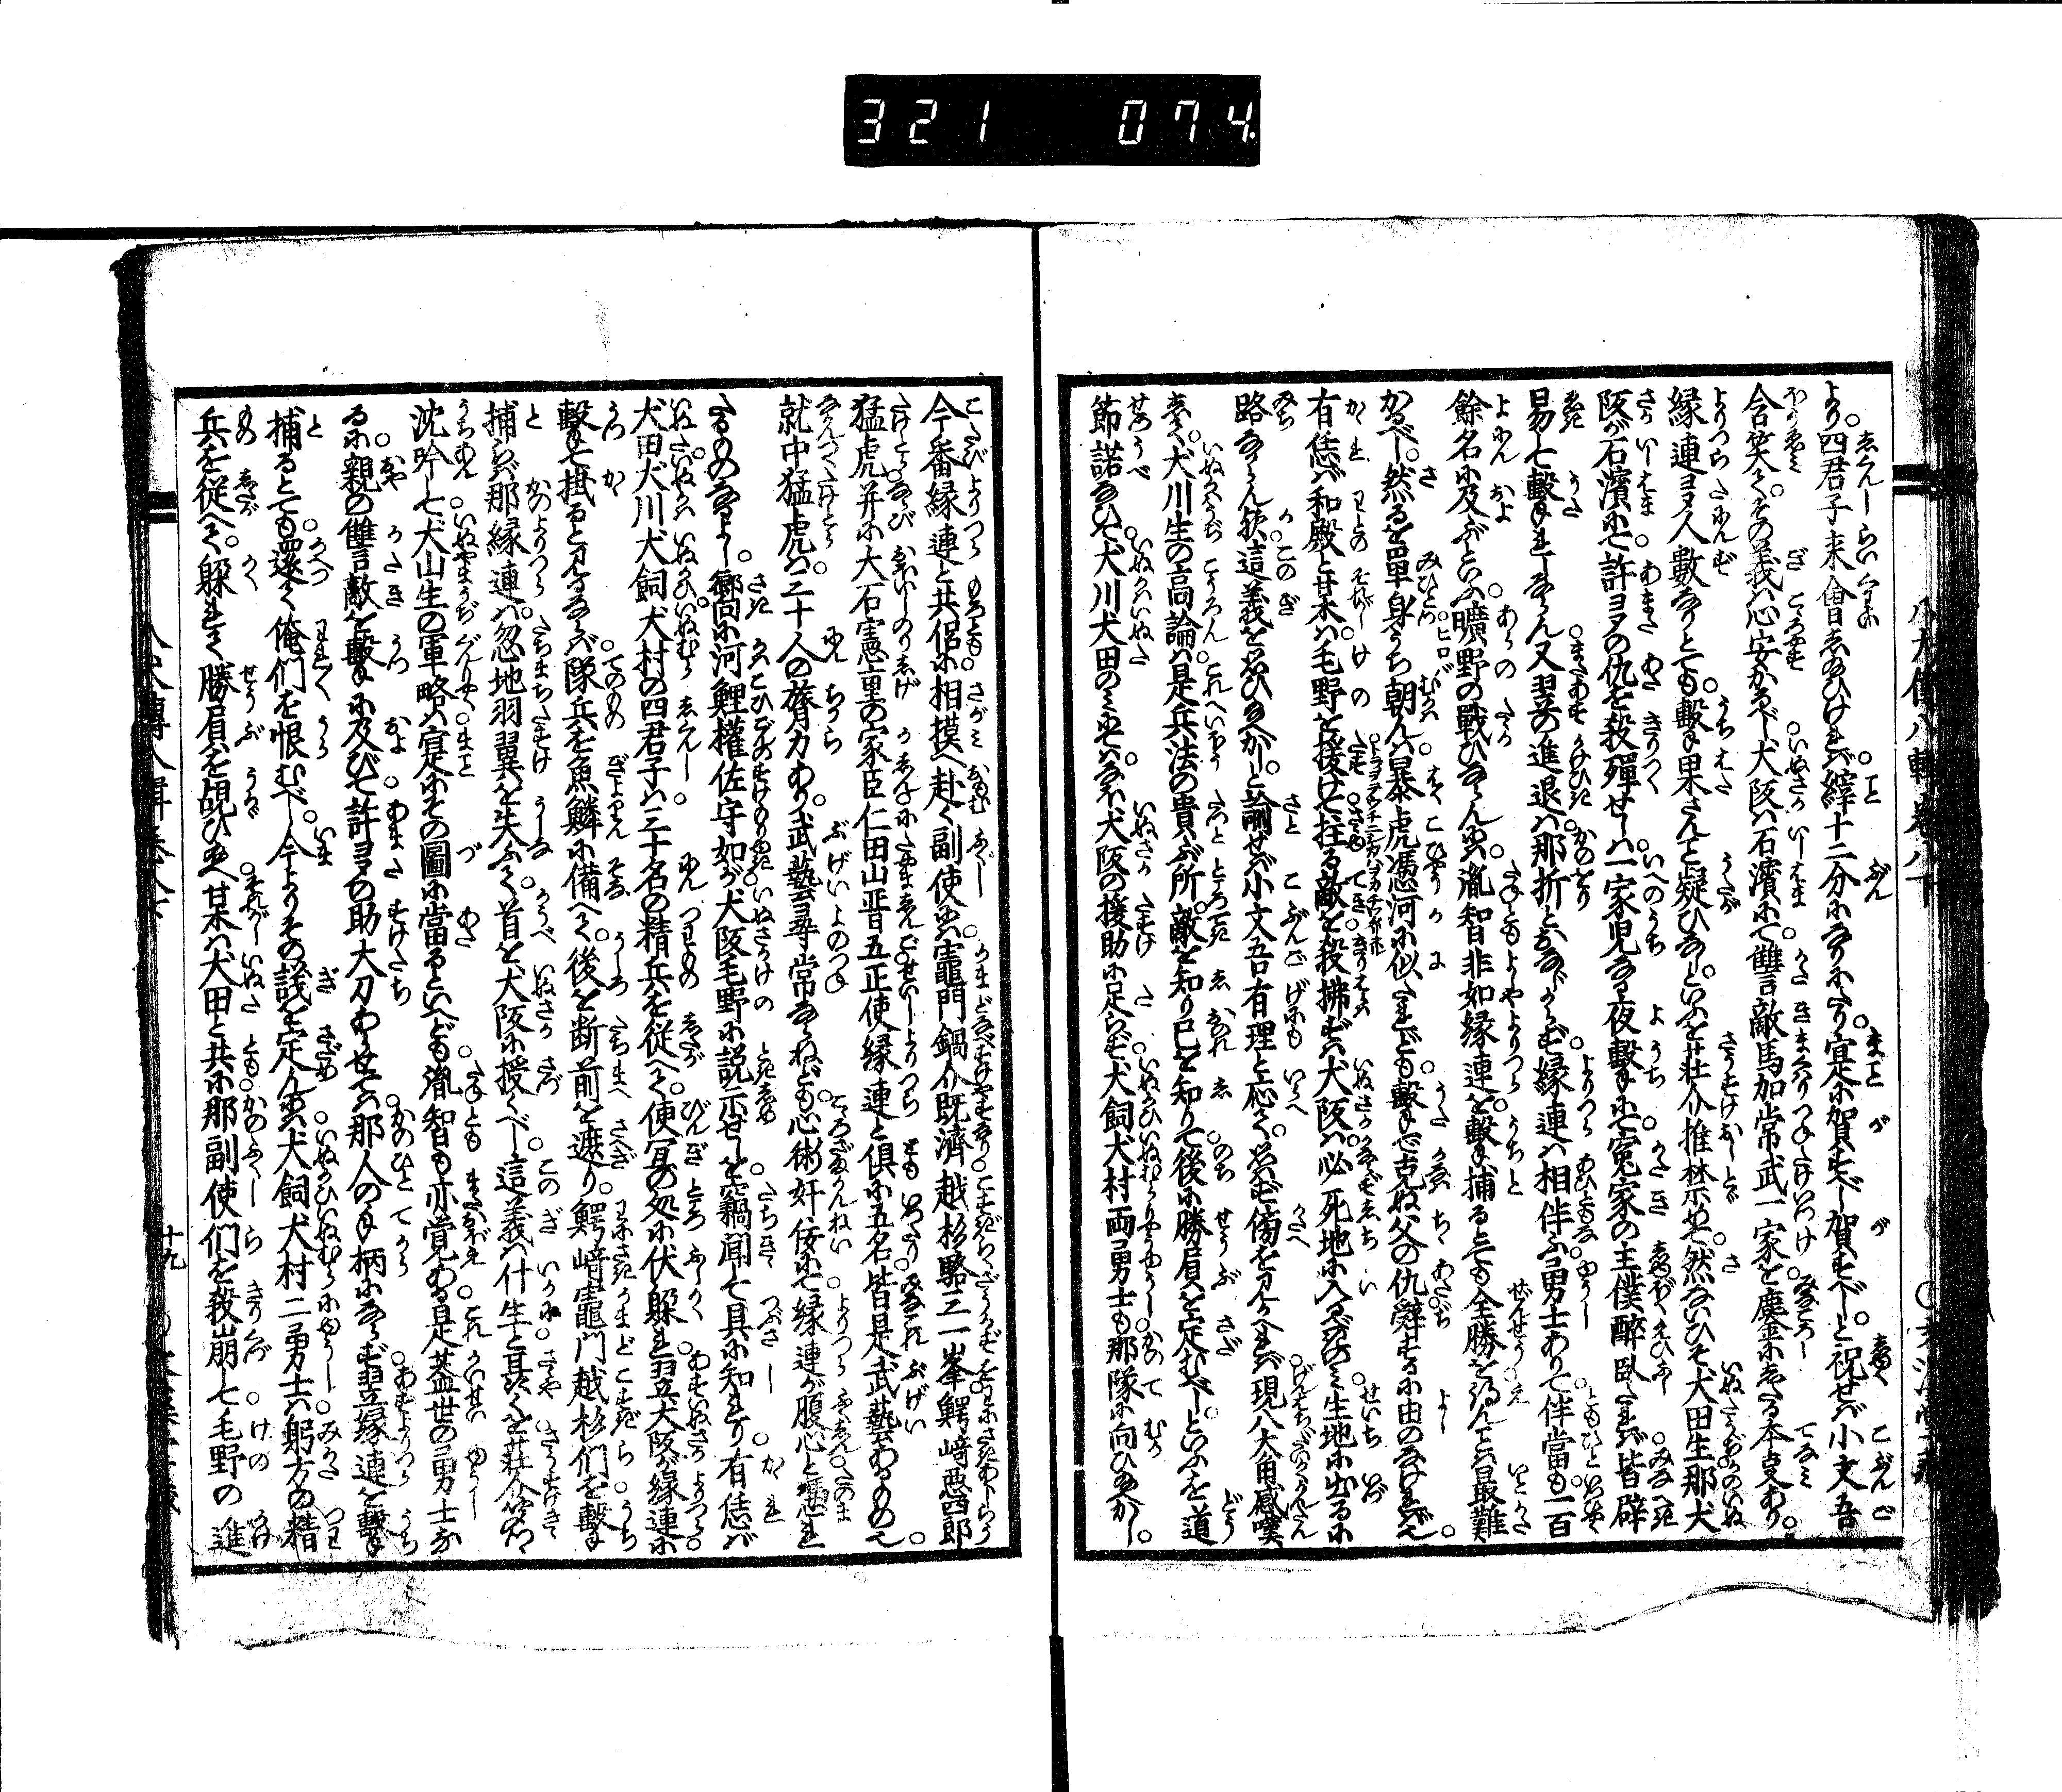 321 074
より。四君子来會ゑ給ひければ縡十二分になりにたり。寔に賀すべし賀すべし。と祝せば小文吾
含笑て。その義は心安かるべし犬阪は石濱にて讐言敵馬加常武一家を塵金にしたる本事あり。
縁連ヨヨ人數なりとても撃果さんと疑ひなし。といふを荘介推禁めて。然ないひそ犬田生那犬
阪が石濱にて許ヨヨの仇を殺殫せしは一家児なる夜撃にて寃家の主僕醉臥たれば皆辟
易して撃れしならん又翌の進退は那折とおなじからず。縁連は相伴ふ勇士ありて伴當も一百
餘名に及ぶといふ曠野の戦ひならんに。胤智非如縁連を撃捕るとても全勝を得んとは最難
かるべし。然るを單身うち朝んは暴虎憑河に似たれども。撃で克ぬ父の仇辞するに由のなければ也
有恁ば和殿と某は毛野を援けて抂る敵を殺拂ずは犬阪は必死地に入るべきのみ生地に出るに
路なからん欤。這義を思ひ給へかし。と諭せば小文吾有理と応て。思ず傍を見かへれば現八大角感嘆
しつ。犬川生の高論は是兵法の貴ぶ所。敵を知り己を知りて後に勝負を定むべし。といふを道
節諾なひて犬川犬田のみならば。なほ犬阪の援助に足らず犬飼犬村両勇士も那隊に向ひ給へかし。
今番縁連と共侶に相摸へ赴く副使は竈門鍋介既濟越杉駱三一峯鰐﨑悪四郎
猛虎并に大石憲重の家臣仁田山晋五正使縁連と倶に五名皆是武藝あるもの也。
就中猛虎は二十人の膂力あり。武藝尋常ならねども。心術奸佞にて縁連が腹心と憑れ
たるものなるよし。嚮に河鯉權佐守如が犬阪毛野に説示せしを竊聞して具に知れり有恁ば
犬田犬川犬飼犬村の四君子は三十名の精兵を従へて。便冝の処に伏躱れ翌犬阪が縁連に
撃て掛ると見るならば隊兵を魚鱗に備へて。後を断前を遮り。鰐﨑竈門越杉們を撃
捕らば那縁連は忽地羽翼を失ふて首を犬阪に授くべし。這義は什生と甚くを荘介
沈吟して犬山生の軍略は寔にその圖に當るといへども胤智も亦覚ある是蓋世の勇士な
るに。親の讐言敵を撃に及びて許ヨヨの助大刀あらせては那人の手柄にならず翌縁連を撃
捕るとても。還て俺們を恨むべし。今よりその議を定んには犬飼犬村二勇士は躬方の精
兵を従へて。躱れて勝負を覘ひ給へ。某は犬田と共に那副使們を殺崩して毛野の進
十九